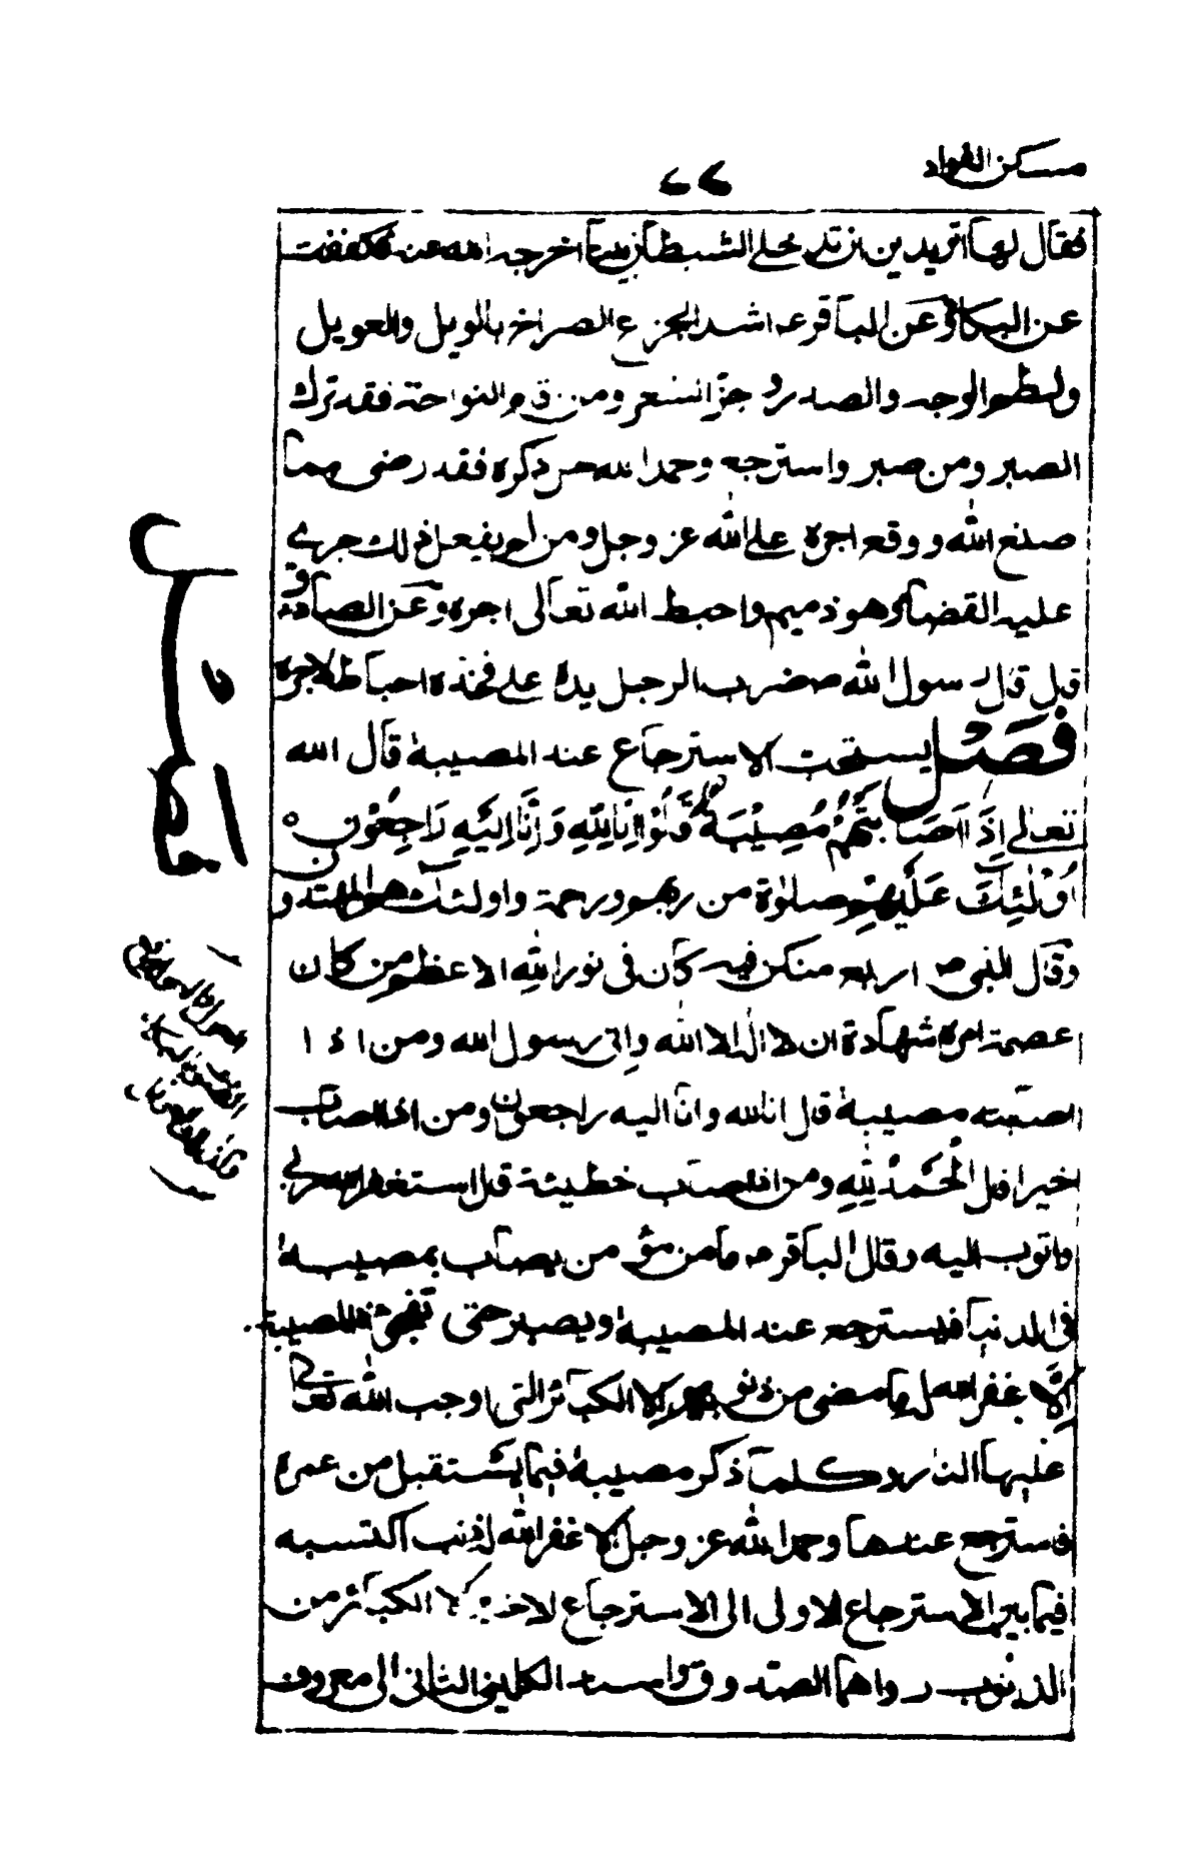 مسكن الفواد
فقال لها اتريدين ان تدخلي الشيطان بيتا اخرجه الله عنه فكففت
عن البكاء وعن الباقر ع اشد الجزع الصراخ بالويل والعويل
ولطم الوجه والصدر و جز الشعر ومن قام النواحة فقد ترك
الصبر ومن صبر واسترجع وحمد الله جل ذكره فقد رضى بما
صنع الله ووقع اجره على الله عز وجل ومن لم يفعل ذلك جرى
عليه القضاء وهو ذميم واحبط الله تعالى اجره وعن الصادق
قبل قال رسول الله ص ضرب الرجل يده على فخذه احباط لاجره
فصل يستحب الاسترجاع عند المصيبة قال الله
تعالى اذا اصابتهم مصيبة قالوا انا لله وانا اليه راجعون
اولئك عليهم صلوة من ربهم ورحمة واولئك هم المهتدون
وقال النبي ص اربع من كن فيه كان فى نور الله الاعظم من كان
عصمة امره شهادة ان لا اله الا الله وانى رسول الله ومن اذا
اصابته مصيبة قال انا لله وانا اليه راجعون ومن اذا اصاب
خيرا قال الحمد لله ومن اذا اصاب خطيئة قال استغفر الله ربى
واتوب اليه وقال الباقر ع ما من مؤمن يصاب بمصيبة
فى الدنيا فيسترجع عند المصيبة ويصبر حتى تفجئه المصيبة
الا غفر الله له ما مضى من ذنوبه الا الكبائر التى اوجب الله تعالى
عليها النار وكلما ذكر مصيبة فيما يستقبل من عمره
فاسترجع عندها وحمد الله عز وجل الا غفر الله له ذنب اكتسبه
فيما بين الاسترجاع الاولى الى الاسترجاع الاخير الا الكبائر من
الذنوب رواهما الصدوق واسند الكلينى الثانى الى معروف